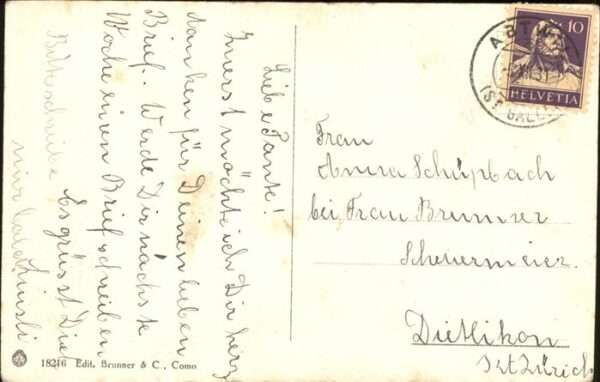 Liebe Tante!
Zuerst möchte ich Dir herz
danken für Deinen lieben
Brief. Werde Dir nächste
Woche einen Brief schreiben
Es grüsst Dich
Bitte schreibe
mir bald
18246 Edit. Brunner & C., Como
ABTW
(ST. GALL
10
HELVETIA
Frau
Anna Schüpbach
bei Frau Brunner
Scheuermeier.
Dietlikon
Kt Zürich